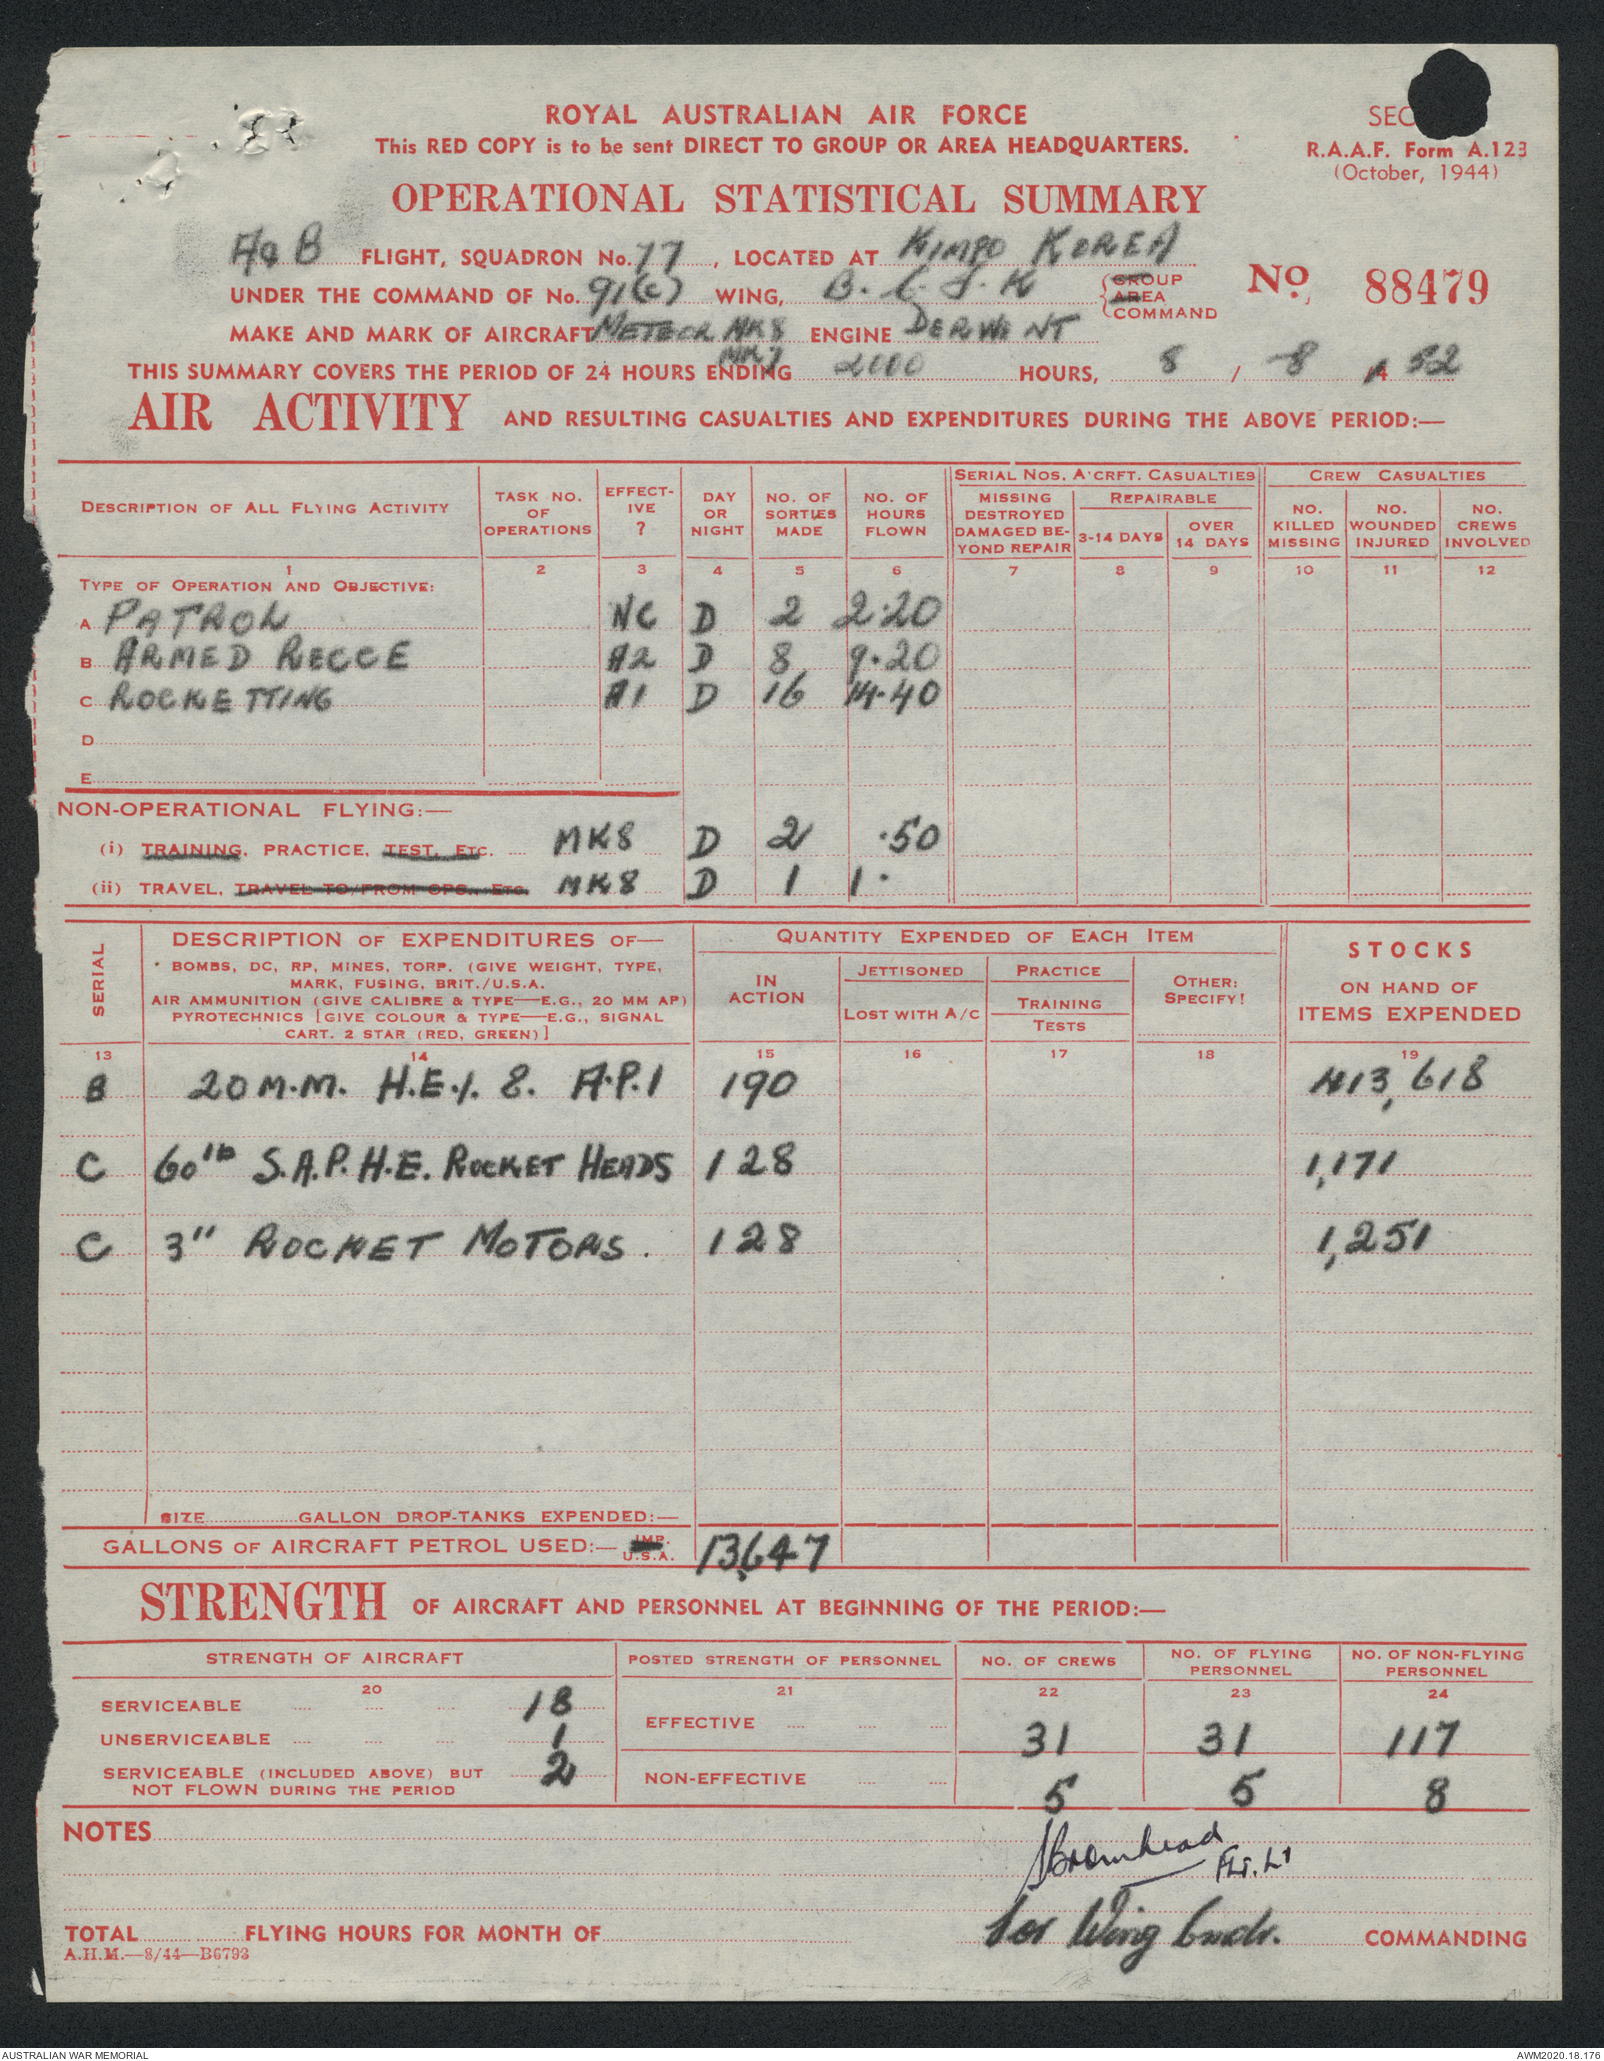 ROYAL AUSTRALIAN AIR FORCE
SEC
This RED COPY is to be sent DIRECT TO GROUP OR AREA HEADQUARTERS.
R.A.A.F. Form A.123
(October, 1944)
OPERATIONAL STATISTICAL SUMMARY
A&B FLIGHT, SQUADRON No. 77, LOCATED AT KIMPO KOREA
UNDER THE COMMAND OF No. 91(C) WING, B.C.F.K GROUP AREA COMMAND
No. 88479
MAKE AND MARK OF AIRCRAFT METEOR MK8 MK7 ENGINE DERWENT
THIS SUMMARY COVERS THE PERIOD OF 24 HOURS ENDING 2400 HOURS, 8 / 8 / 52
AIR ACTIVITY AND RESULTING CASUALTIES AND EXPENDITURES DURING THE ABOVE PERIOD:—
DESCRIPTION OF ALL FLYING ACTIVITY
TASK NO. OF OPERATIONS
EFFECT-IVE ?
DAY OR NIGHT
NO. OF SORTIES MADE
NO. OF HOURS FLOWN
SERIAL NOS. A'CRFT. CASUALTIES
MISSING DESTROYED DAMAGED BE-YOND REPAIR
REPAIRABLE
3-14 DAYS
OVER 14 DAYS
CREW CASUALTIES
NO. KILLED MISSING
NO. WOUNDED INJURED
NO. CREWS INVOLVED
1 2 3 4 5 6 7 8 9 10 11 12
TYPE OF OPERATION AND OBJECTIVE:
A PATROL NC D 2 2.20
B ARMED RECCE A2 D 8 9.20
C ROCKETTING A1 D 16 14.40
D
E
NON-OPERATIONAL FLYING:—
(i) TRAINING, PRACTICE, TEST, ETC. MK8 D 2 .50
(ii) TRAVEL, TRAVEL TO/FROM OPS., ETC. MK8 D 1 1.
SERIAL
DESCRIPTION OF EXPENDITURES OF—
BOMBS, DC, RP, MINES, TORP. (GIVE WEIGHT, TYPE,
MARK, FUSING, BRIT./U.S.A.
AIR AMMUNITION (GIVE CALIBRE & TYPE—E.G., 20 MM AP)
PYROTECHNICS [GIVE COLOUR & TYPE—E.G., SIGNAL
CART. 2 STAR (RED, GREEN)]
QUANTITY EXPENDED OF EACH ITEM
IN ACTION
JETTISONED
LOST WITH A/C
PRACTICE
TRAINING
TESTS
OTHER: SPECIFY!
STOCKS
ON HAND OF
ITEMS EXPENDED
13 14 15 16 17 18 19
B 20 M.M. H.E.I. & A.P.I 190 413,618
C 60 lb S.A.P.H.E. ROCKET HEADS 128 1,171
C 3" ROCKET MOTORS. 128 1,251
SIZE GALLON DROP-TANKS EXPENDED:—
GALLONS OF AIRCRAFT PETROL USED:— IMP. U.S.A. 13,647
STRENGTH OF AIRCRAFT AND PERSONNEL AT BEGINNING OF THE PERIOD:—
STRENGTH OF AIRCRAFT
POSTED STRENGTH OF PERSONNEL
NO. OF CREWS
NO. OF FLYING PERSONNEL
NO. OF NON-FLYING PERSONNEL
20 21 22 23 24
SERVICEABLE 18
UNSERVICEABLE 1
SERVICEABLE (INCLUDED ABOVE) BUT
NOT FLOWN DURING THE PERIOD 2
EFFECTIVE 31 31 117
NON-EFFECTIVE 5 5 8
NOTES
Bromhead Flt. Lt
for Wing Cmdr. COMMANDING
TOTAL FLYING HOURS FOR MONTH OF
A.H.M.—8/44—B6793
AUSTRALIAN WAR MEMORIAL
AWM2020.18.176